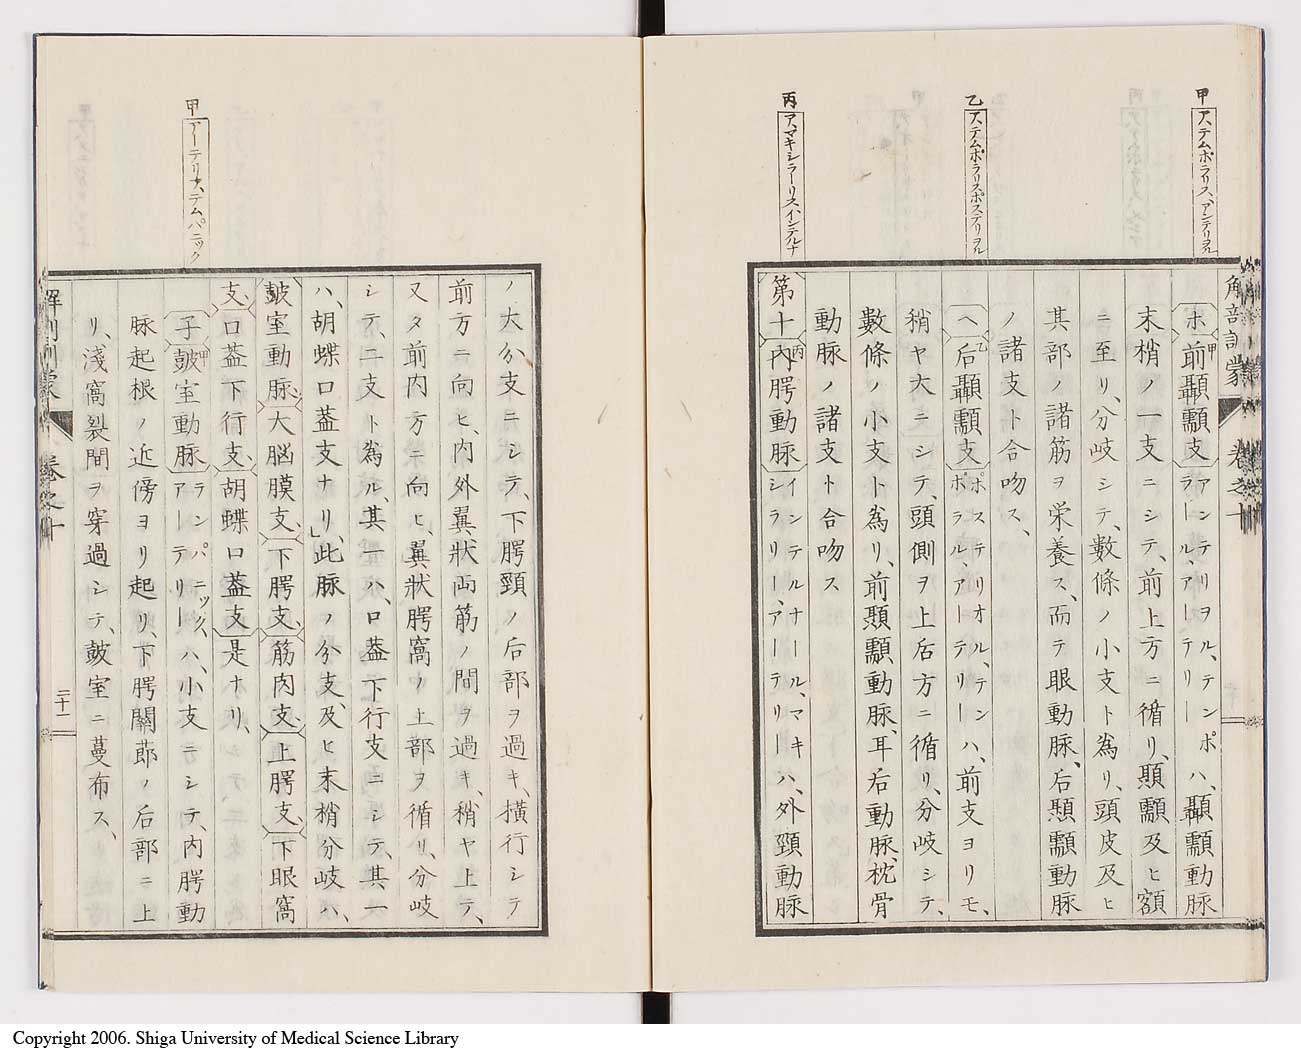 甲 ア、テムポラリス、アンテリヲル
乙 ア、テムポラリスポステリヲル
丙 ア、マキシラーリス、インテルナ
解剖訓蒙 卷之十
ホ前甲顳顬支アンテリヲル、テンポラール、アーテリーハ、顳顬動脈
末梢ノ一支ニシテ、前上方ニ循リ、顳顬及ヒ額
ニ至リ、分岐シテ、數條ノ小支ト為リ、頭皮及ヒ
其部ノ諸筋ヲ栄養ス、而テ眼動脈、后顳顬動脈
ノ諸支ト合吻ス、
ヘ后乙顳顬支ポステリオル、テンポラル、アーテリーハ、前支ヨリモ、
稍ヤ大ニシテ、頭側ヲ上后方ニ循リ、分岐シテ、
數條ノ小支ト為リ、前顳顬動脈、耳后動脈、枕骨
動脈ノ諸支ト合吻ス
第十内丙腭動脈インテルナール、マキシラリー、アーテリーハ、外頸動脈
甲 アーテリア、テムパニック
ノ大分支ニシテ、下腭頸ノ后部ヲ過キ、横行シテ
前方ニ向ヒ、内外翼状両筋ノ間ヲ過キ、稍ヤ上テ、
又タ前内方ニ向ヒ、翼状腭窩ノ上部ヲ循リ、分岐
シテ、二支ト為ル、其一ハ、口蓋下行支ニシテ、其一
ハ、胡蝶口蓋支ナリ、」此脈ノ分支、及ヒ末梢分岐ハ、
皷室動脈、大脳膜支、下腭支、筋肉支、上腭支、下眼窩
支、口蓋下行支、胡蝶口蓋支是ナリ、
子皷甲室動脈ランパニック、アーテリーハ、小支ニシテ、内腭動
脈起根ノ近傍ヨリ起リ、下腭關莭ノ后部ニ上
リ、淺窩裂間ヲ穿過シテ、皷室ニ蔓布ス、
解剖訓蒙 卷之十 二十一
Copyright 2006. Shiga University of Medical Science Library